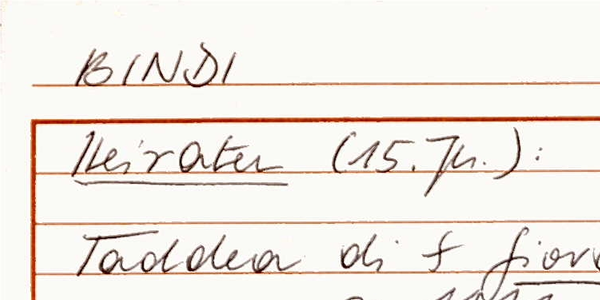 BINDI
Heiraten (15. Jh.):
Taddea di f